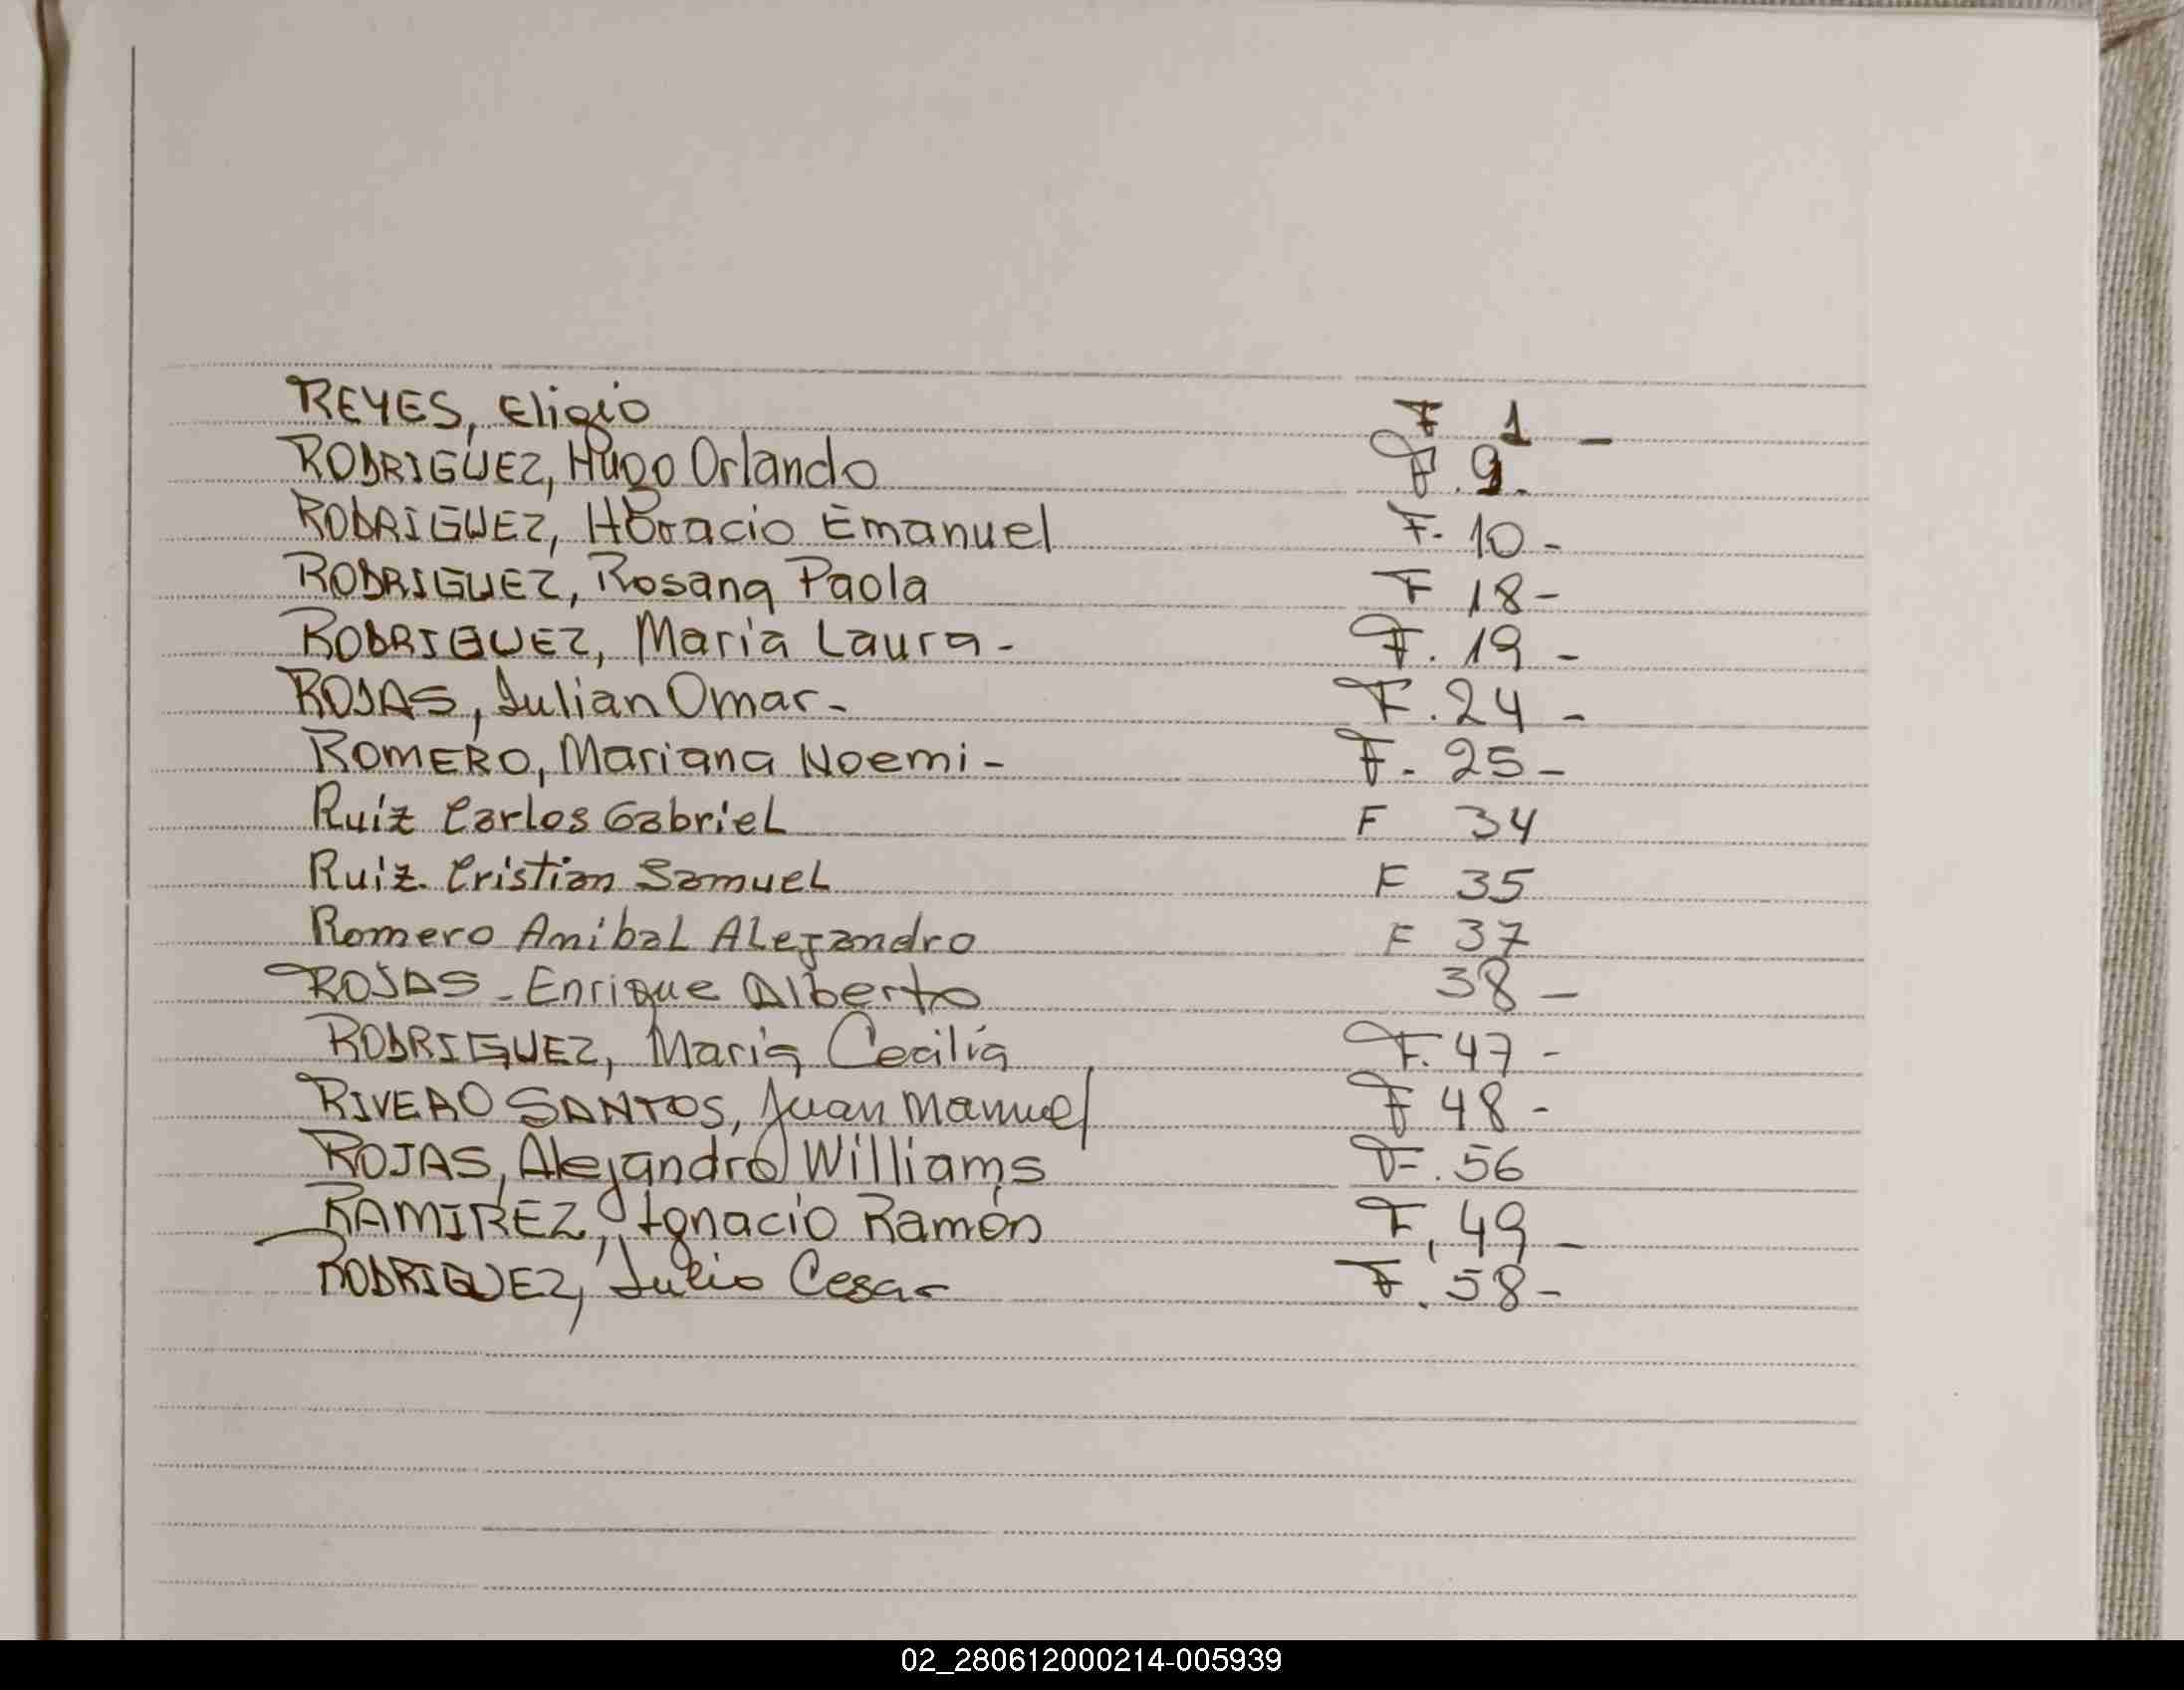 REYES, Eligio F 1 -
RODRIGUEZ, Hugo Orlando F. 9.
RODRIGUEZ, Horacio Emanuel F. 10 -
RODRIGUEZ, Rosana Paola F 18 -
RODRIGUEZ, Maria Laura - F. 19 -
ROJAS, Julian Omar - F. 24 -
ROMERO, Mariana Noemi - F. 25 -
Ruiz Carlos Gabriel F 34
Ruiz. Cristian Samuel F 35
Romero Anibal Alejandro F 37
ROJAS - Enrique Alberto 38 -
RODRIGUEZ, Maria Cecilia F. 47 -
RIVERO SANTOS, Juan Manuel F 48 -
ROJAS, Alejandro Williams F. 56
RAMIREZ, Ignacio Ramón F. 49 -
RODRIGUEZ, Julio Cesar F. 58 -
02_280612000214-005939